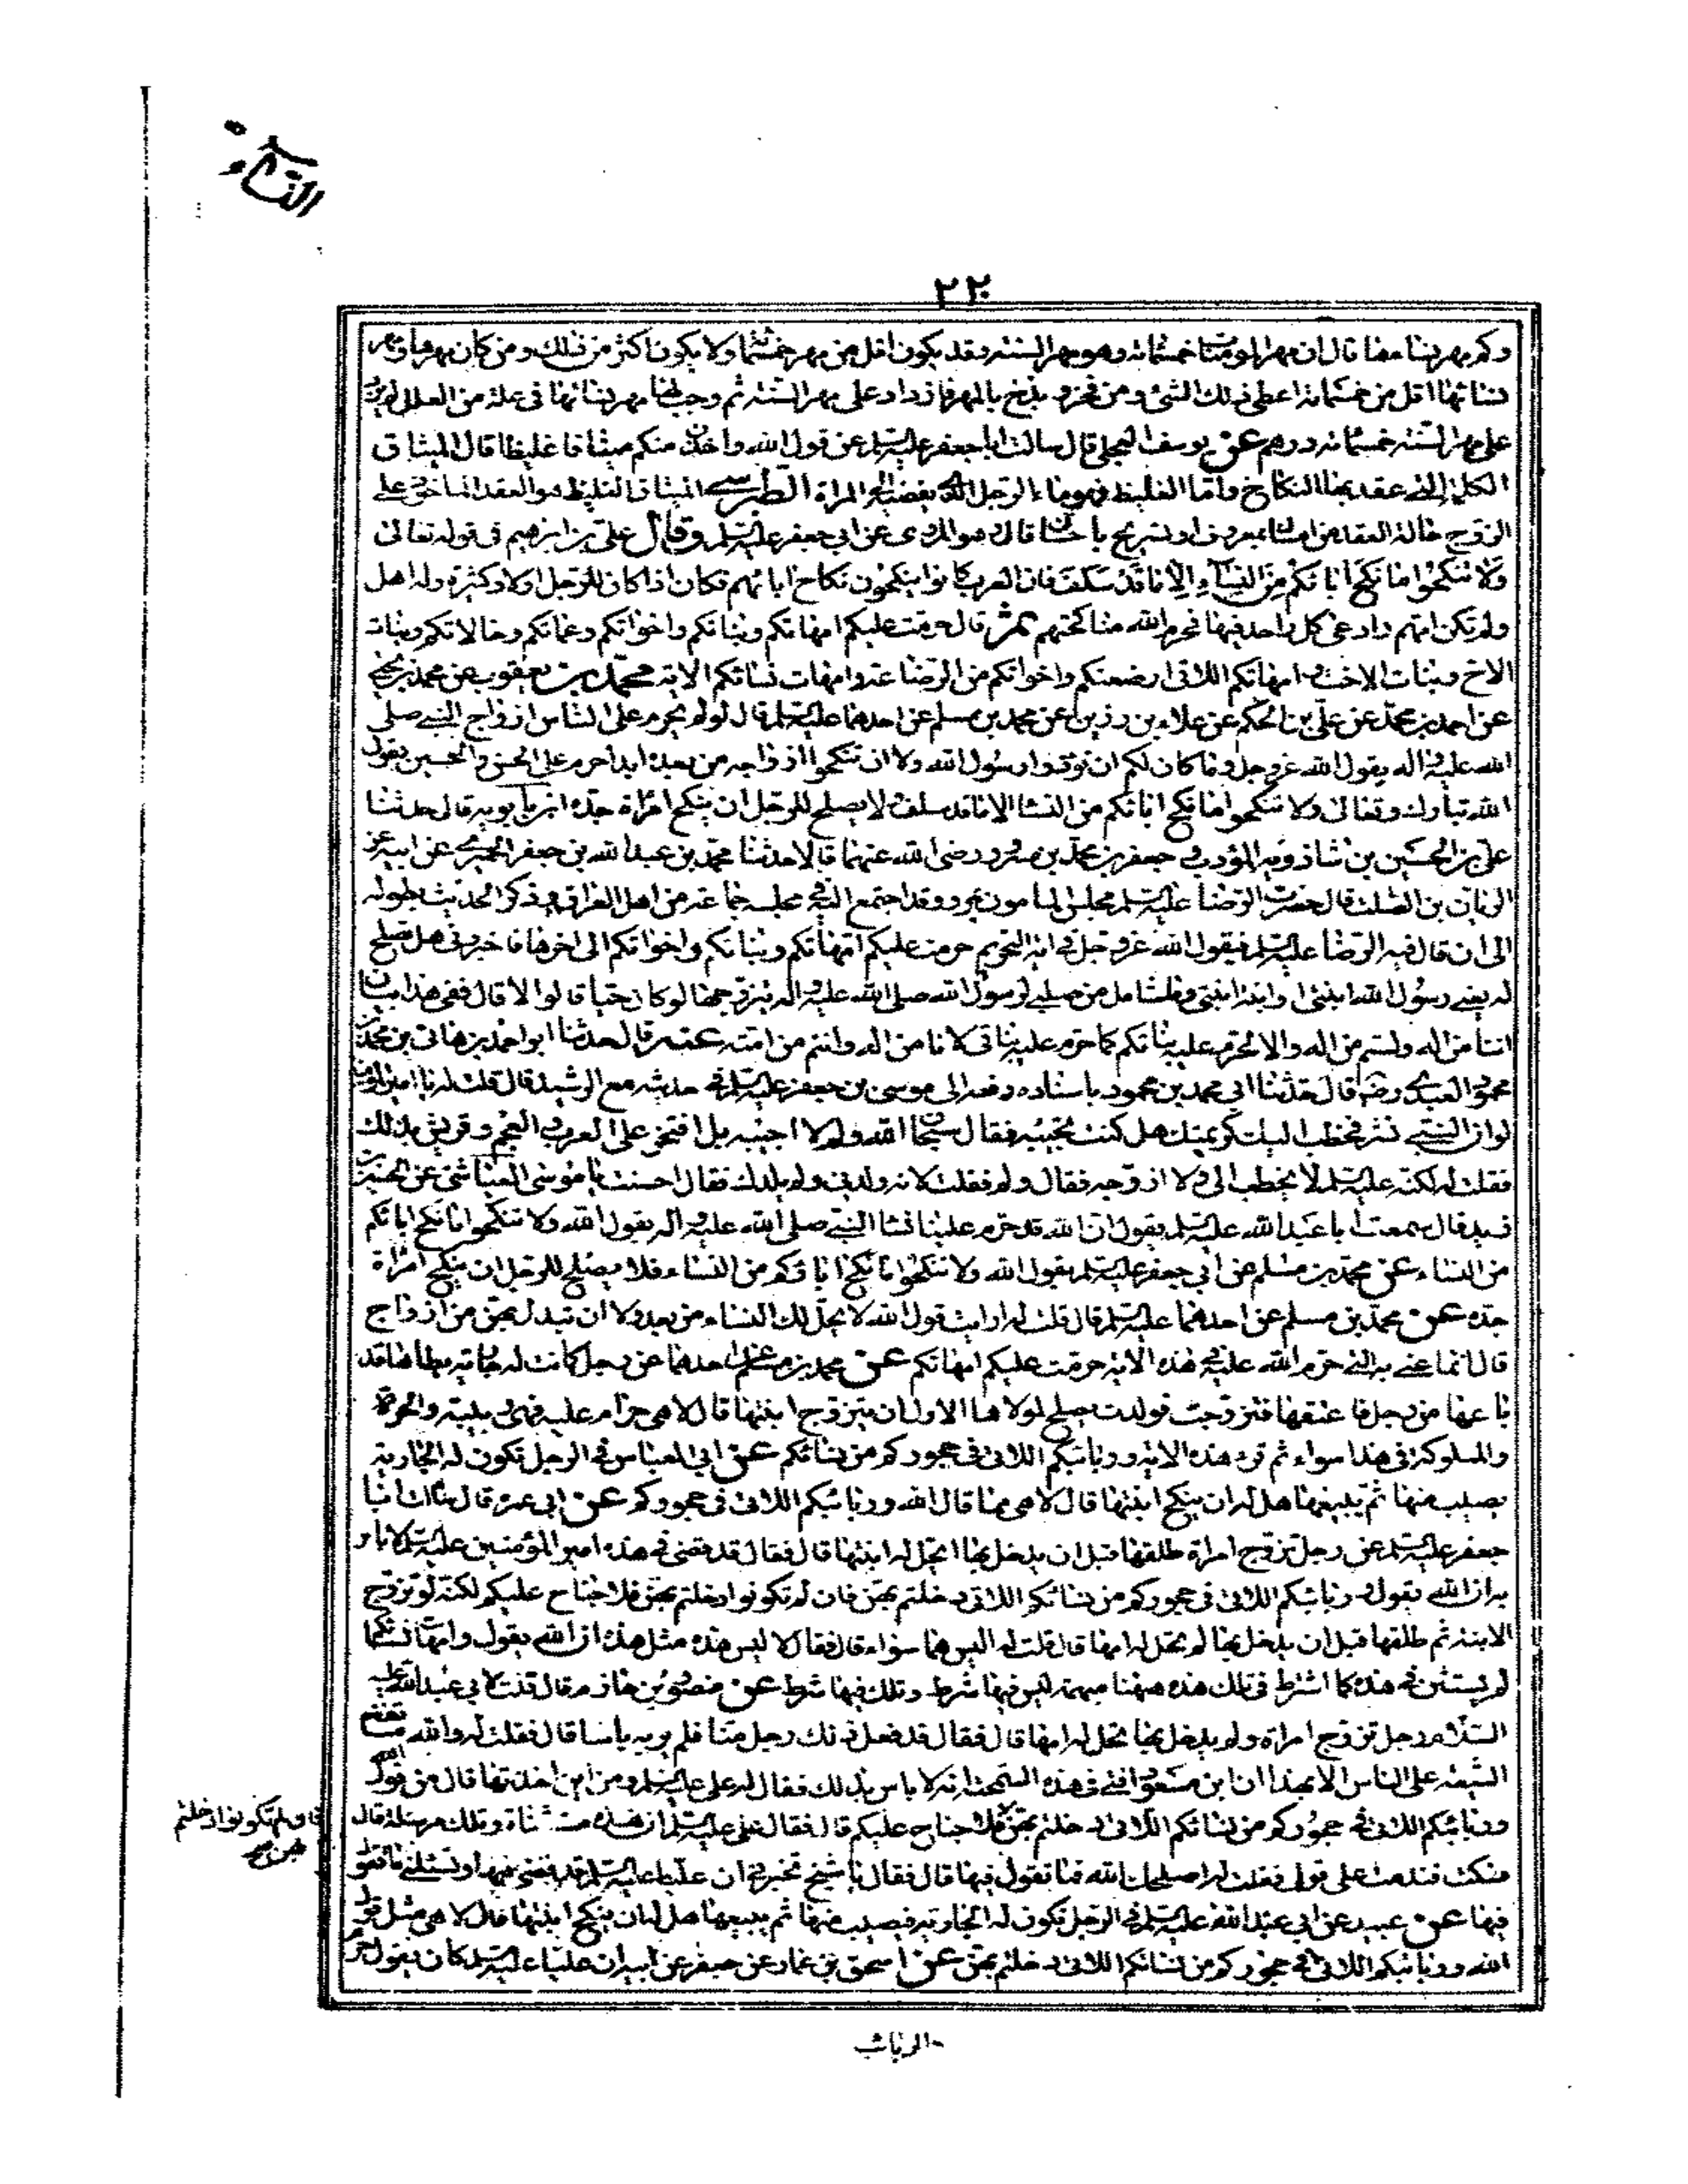 النساء
٢٢٠
وكم مهر بناتها قال ان مهر المؤمنات خمسمائة وهو مهر السنة وقد يكون اقل من مهر خمسمائة ولا يكون اكثر من ذلك ومن كان مهرها ومهر
نسائها اقل من خمسمائة اعطى ذلك الشئ ومن فخر و بذخ بالمهر فازداد على مهر السنة ثم وجب لها مهر نسائها فى علة من العلل لم يزد
على مهر السنة خمسمائة درهم عن يوسف العجلي قال سالت ابا جعفر عليه السلم عن قول الله واخذن منكم ميثاقا غليظا قال الميثاق
الكلمة التي عقد بها النكاح واما الغليظ فهو ماء الرجل الذى يفضيه الى المراة الطبرسي الميثاق الغليظ هو العقد الماخوذ على
الزوج حالة العقد من امساك بمعروف او تسريح باحسان قال وهو المروى عن ابي جعفر عليه السلم وقال علي بن ابرهيم فى قوله تعالى
وَلا تَنْكِحُوا ما نَكَحَ اباؤكُم مِنَ النِّسَآءِ اِلّا ما قَدْ سَلَفَ فان العرب كانوا ينكحون نكاح ابائهم فكان اذا كان للرجل اولاد كثيرة وله اهل
ولم تكن امهم ادعى كل واحد فيها فحرم الله مناكحتهم ثم قال حرمت عليكم امهاتكم وبناتكم واخواتكم وعماتكم وخالاتكم وبنات
الاخ وبنات الاخت وامهاتكم اللاتى ارضعنكم واخواتكم من الرضاعة وامهات نسائكم الاية محمد بن يعقوب عن محمد بن يحيى
عن احمد بن محمد عن علي بن الحكم عن علاء بن رزين عن محمد بن مسلم عن احدهما عليه السلم قال لو لم يحرم على الناس ازواج النبي صلى
الله عليه واله يقول الله عزوجل وما كان لكم ان تؤذوا رسول الله ولا ان تنكحوا ازواجه من بعده ابدا حرم على الحسن والحسين بقول
الله تبارك وتعالى ولا تنكحوا ما نكح اباؤكم من النساء الا ما قد سلف لا يصلح للرجل ان ينكح امراة جده ابن بابويه قال حدثنا
علي بن الحسين بن شاذويه المؤدب و جعفر بن محمد بن مسرور رضى الله عنهما قالا حدثنا محمد بن عبد الله بن جعفر الحميري عن ابيه عن
الريان بن الصلت قال حضرت الرضا عليه السلم مجلس المامون بمرو وقد اجتمع اليه فى مجلسه جماعة من اهل العراق وذكر الحديث بطوله
الى ان قال فيه الرضا عليه السلم فيقول الله عزوجل فى اية التحريم حرمت عليكم امهاتكم وبناتكم واخواتكم الى اخرها فاخبرونى هل تصلح
له يعنى رسول الله ابنتى او ابنة ابنتى وما تناسل من صلبى لرسول الله صلى الله عليه واله يتزوجها لو كان حيا قالوا لا قال ففى هذا بيان
اننا من اله ولستم من اله والا لحرم عليه بناتكم كما حرم عليه بناتى لانا من اله وانتم من امته عنه قال حدثنا ابو احمد هانى بن محمد بن
محمود العبدي رض قال حدثنا ابى محمد بن محمود باسناده رفعه الى موسى بن جعفر عليه السلم فى حديثه مع الرشيد قال قلت له يا امير المؤمنين
لو ان النبي نشر فخطب اليك كريمتك هل كنت تجيبه فقال سبحان الله ولم لا اجيبه بل افتخر على العرب والعجم وقريش بذلك
فقلت له لكنه عليه السلم لا يخطب الى ولا ازوجه فقال ولم فقلت لانه ولدنى ولم يلدك فقال احسنت يا موسى العياشى عن الحسين بن
زيد قال سمعت ابا عبد الله عليه السلم يقول ان الله قد حرم علينا نساء النبي صلى الله عليه واله يقول الله ولا تنكحوا ما نكح اباؤكم
من النساء عن محمد بن مسلم عن ابي جعفر عليه السلم يقول الله ولا تنكحوا ما نكح اباؤكم من النساء فلا يصلح للرجل ان ينكح امراة
جده عن محمد بن مسلم عن احدهما عليه السلم قال قلت له ارايت قول الله لا يحل لك النساء من بعد ولا ان تبدل بهن من ازواج
قال انما عنى به التي حرم الله عليه فى هذه الاية حرمت عليكم امهاتكم عن محمد بن مسلم عن احدهما عن رجل كانت له جارية يطاها قد
باعها من رجل فاعتقها فتزوجت فولدت يصلح لمولاها الاول ان يتزوج ابنتها قال لا هى حرام عليه فهى ربيبته والحرة
والمملوكة فى هذا سواء ثم قرء هذه الاية وربائبكم اللاتى فى حجوركم من نسائكم عن ابي العباس فى الرجل تكون له الجارية
يصيب منها ثم يبيعها هل له ان ينكح ابنتها قال لا هى مما قال الله وربائبكم اللاتى فى حجوركم عن ابي حمزة قال سالت ابا
جعفر عليه السلم عن رجل تزوج امراة طلقها قبل ان يدخل بها اتحل له ابنتها قال فقال قد قضى فى هذه امير المؤمنين عليه السلم لا باس
به ان الله يقول وربائبكم اللاتى فى حجوركم من نسائكم اللاتى دخلتم بهن فان لم تكونوا دخلتم بهن فلا جناح عليكم لكنه لو تزوج
الابنة ثم طلقها قبل ان يدخل بها لم تحل له امها قال قلت له اليس هما سواء قال فقال لا ليس هذه مثل هذه ان الله يقول وامهات نسائكم
لم يستثن فى هذه كما اشترط فى تلك هذه ههنا مبهمة ليس فيها شرط وتلك فيها شرط عن منصور بن حازم قال قلت لابي عبد الله عليه
السلام رجل تزوج امراة ولم يدخل بها تحل له امها قال فقال قد فعل ذلك رجل منا فلم ير به باسا قال فقلت له والله ما تفخر
الشيعة على الناس الا بهذا ان ابن مسعود افتى فى هذه الشمخية انه لا باس بذلك فقال له على عليه السلم ومن اين اخذتها قال من قول الله
وربائبكم اللاتى فى حجوركم من نسائكم اللاتى دخلتم بهن فلا جناح عليكم قال فقال على عليه السلم ان هذه مستثناة وتلك مرسلة قال
فان لم تكونوا دخلتم
بهن صح
فسكت فندمت على قولى فقلت له اصلحك الله فما تقول فيها قال فقال يا شيخ تخبرنى ان عليا عليه السلم قد قضى فيها وتسئلنى ما تقول
فيها عن عبيد عن ابي عبد الله عليه السلم فى الرجل تكون له الجارية فيصيب منها ثم يبيعها هل له ان ينكح ابنتها قال لا هى مثل قول
الله وربائبكم اللاتى فى حجوركم من نسائكم اللاتى دخلتم بهن عن اسحق بن عمار عن جعفر عن ابيه ان عليا عليه السلم كان يقول
الربائب